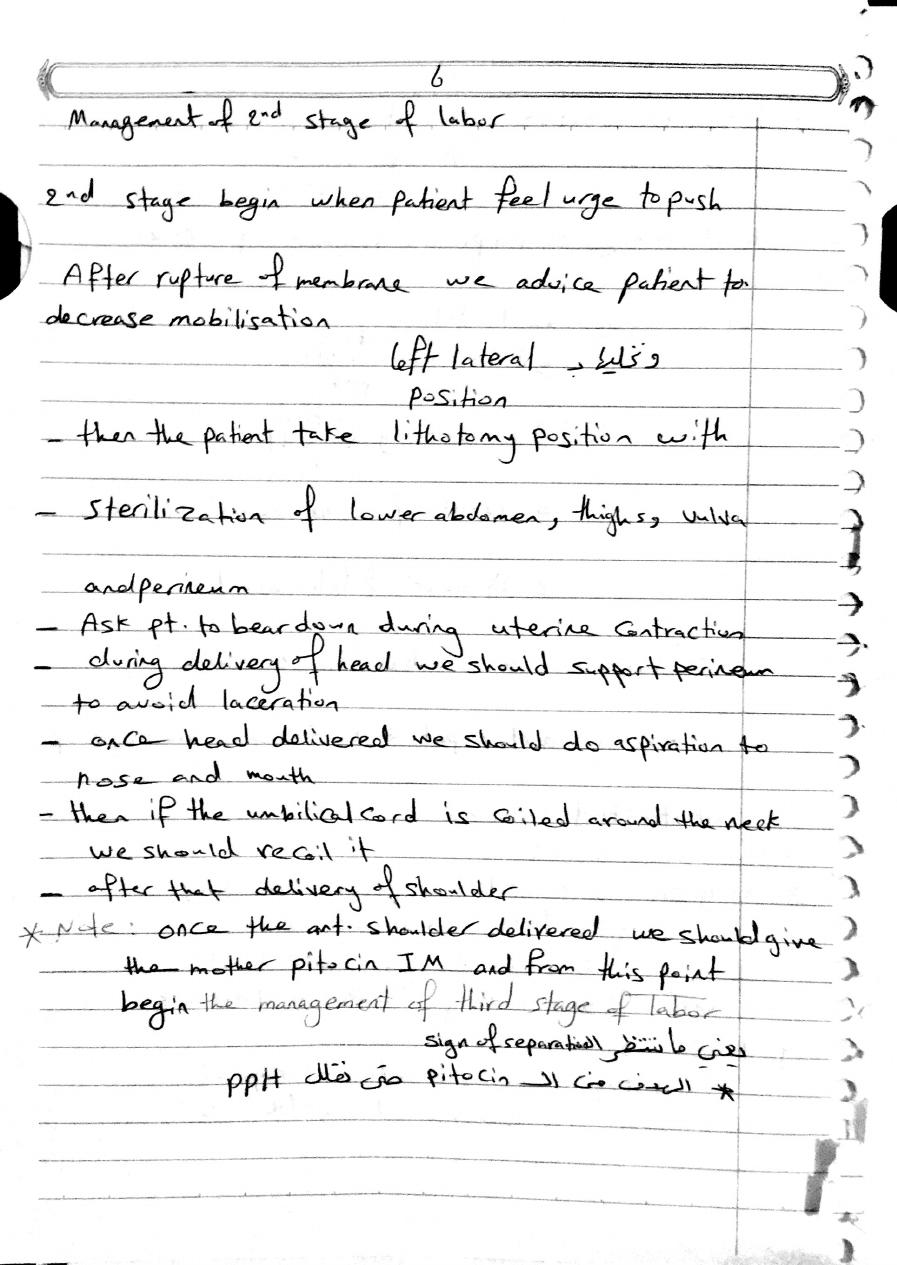 6
Management of 2nd stage of labor
2nd stage begin when patient feel urge to push
After rupture of membrane we advice patient to
decrease mobilisation
ونخليها بـ left lateral
position
- then the patient take lithotomy position with
- sterilization of lower abdomen, thighs, vulva
and perineum
- Ask pt. to bear down during uterine contraction
- during delivery of head we should support perineum
to avoid laceration
- once head delivered we should do aspiration to
nose and mouth
- then if the umbilical cord is coiled around the neck
we should recoil it
- after that delivery of shoulder
* Note: once the ant. shoulder delivered we should give
the mother pitocin IM and from this point
begin the management of third stage of labor
يعني ما ننتظر الـ sign of separation
* الهدف من الـ pitocin حتى نقلل PPH